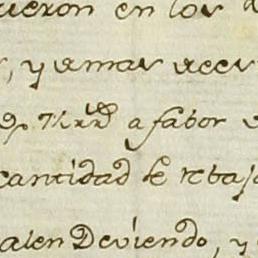 ueron en los
, y a mas
a fabor
cantidad se rebaj
alen Deviendo, y